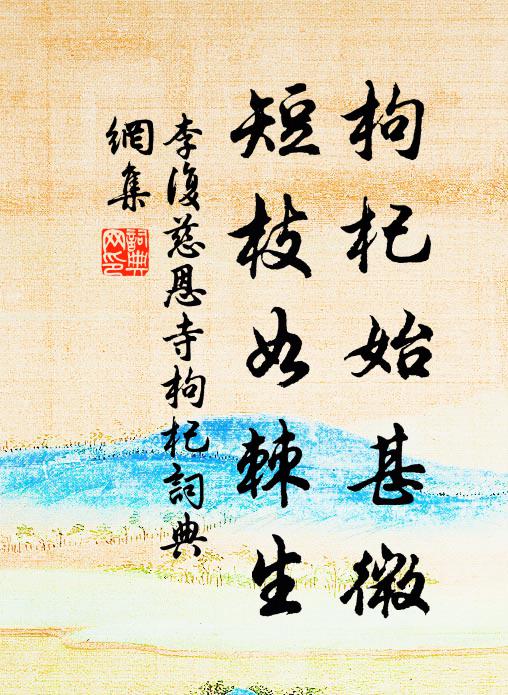 枸杞始甚微
短枝如棘生
李復慈恩寺枸杞詞典
網集
詞典網印